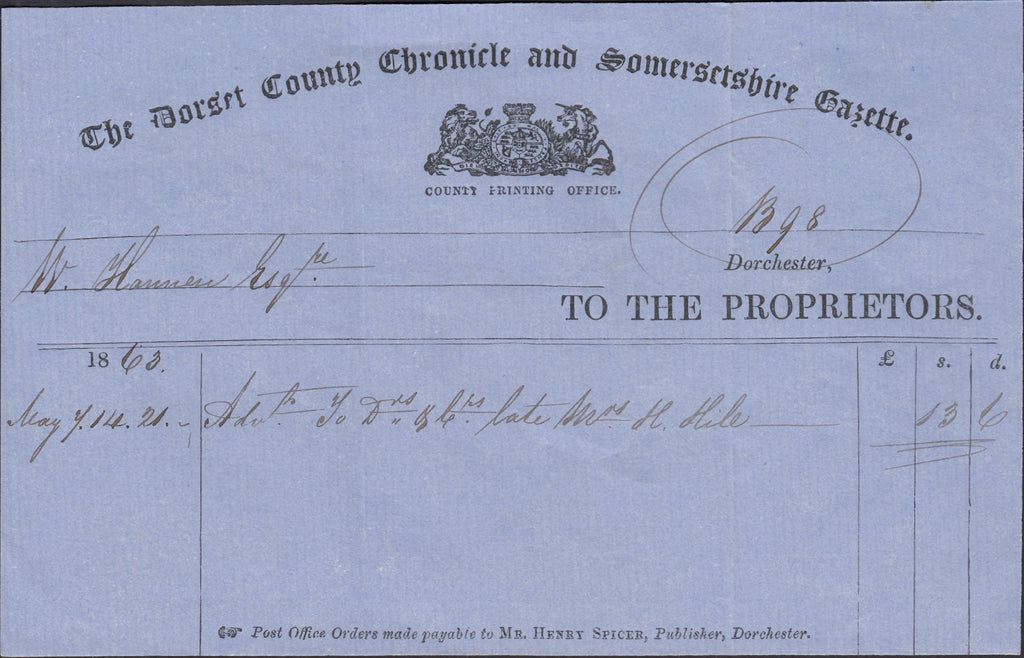 The Dorset County Chronicle and Somersetshire Gazette.
COUNTY PRINTING OFFICE.
B 98
Dorchester,
W. Hannen Esqre
TO THE PROPRIETORS.
1863. £ s. d.
May 7. 14. 21. Advts To Drs & Crs late Mrs H. Hile 13 6
Post Office Orders made payable to MR. HENRY SPICER, Publisher, Dorchester.